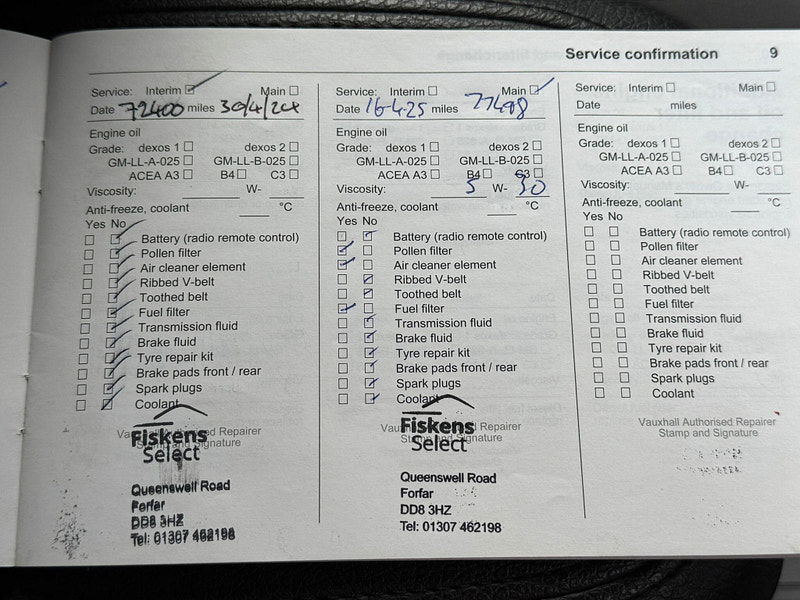 Service confirmation 9
Service: Interim Main
Date 72400 miles 30/4/24
Engine oil
Grade: dexos 1 dexos 2
GM-LL-A-025 GM-LL-B-025
ACEA A3 B4 C3
Viscosity: W-
Anti-freeze, coolant °C
Yes No
Battery (radio remote control)
Pollen filter
Air cleaner element
Ribbed V-belt
Toothed belt
Fuel filter
Transmission fluid
Brake fluid
Tyre repair kit
Brake pads front / rear
Spark plugs
Coolant
Vauxhall Authorised Repairer
Stamp and Signature
Fiskens
Select
Queenswell Road
Forfar
DD8 3HZ
Tel: 01307 462198
Service: Interim Main
Date 16-4-25 miles 77498
Engine oil
Grade: dexos 1 dexos 2
GM-LL-A-025 GM-LL-B-025
ACEA A3 B4 C3
Viscosity: 5 W- 30
Anti-freeze, coolant °C
Yes No
Battery (radio remote control)
Pollen filter
Air cleaner element
Ribbed V-belt
Toothed belt
Fuel filter
Transmission fluid
Brake fluid
Tyre repair kit
Brake pads front / rear
Spark plugs
Coolant
Vauxhall Authorised Repairer
Stamp and Signature
Fiskens
Select
Queenswell Road
Forfar
DD8 3HZ
Tel: 01307 462198
Service: Interim Main
Date miles
Engine oil
Grade: dexos 1 dexos 2
GM-LL-A-025 GM-LL-B-025
ACEA A3 B4 C3
Viscosity: W-
Anti-freeze, coolant °C
Yes No
Battery (radio remote control)
Pollen filter
Air cleaner element
Ribbed V-belt
Toothed belt
Fuel filter
Transmission fluid
Brake fluid
Tyre repair kit
Brake pads front / rear
Spark plugs
Coolant
Vauxhall Authorised Repairer
Stamp and Signature